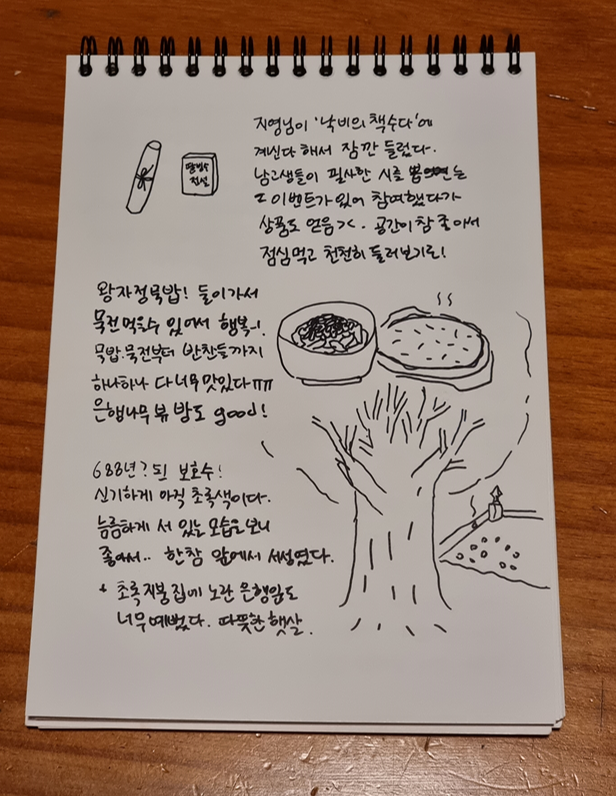 땅빵수
전설
지영님이 '낙비의 책수다'에
계신다 해서 잠깐 들렀다.
남고생들이 필사한 시를 뽑는
이벤트가 있어 참여했다가
상품도 얻음><. 공간이 참 좋아서
점심먹고 천천히 둘러보기로!
왕자정묵밥! 둘이가서
묵전먹을수 있어서 행복..!
묵밥.묵전부터 반찬들까지
하나하나 다너무 맛있다ㅠㅠ
은행나무 뷰 밤도 good!
688년? 된 보호수!
신기하게 아직 초록색이다.
늠름하게 서 있는 모습을 보니
좋아서.. 한참 앞에서 서성였다.
+ 초록지붕집에 노란 은행잎도
너무예뻤다. 따뜻한 햇살.